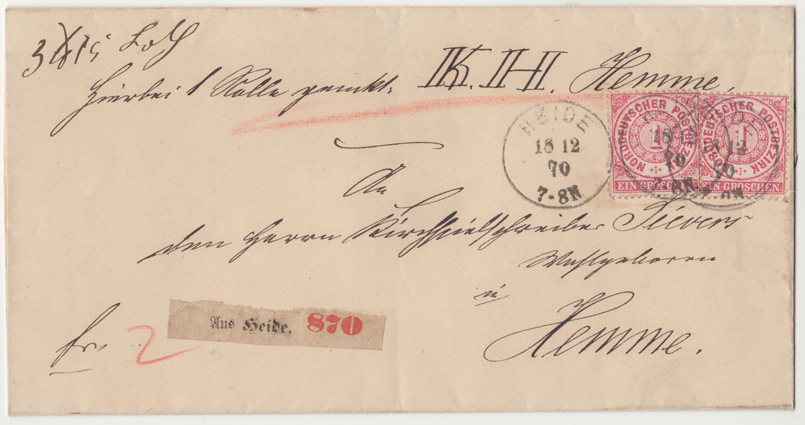 Loth
Hierbei 1 Rolle gemkt. K. H. Hemme.
NORDDEUTSCHER POSTBEZIRK
1
EIN GROSCHEN
NORDDEUTSCHER POSTBEZIRK
1
EIN GROSCHEN
HEIDE
18 12
70
7-8N
18 12
70
An
den Herrn Kirchspielschreiber Sievers
Wohlgeboren
in
Hemme.
Aus Heide. 870
fr. 2